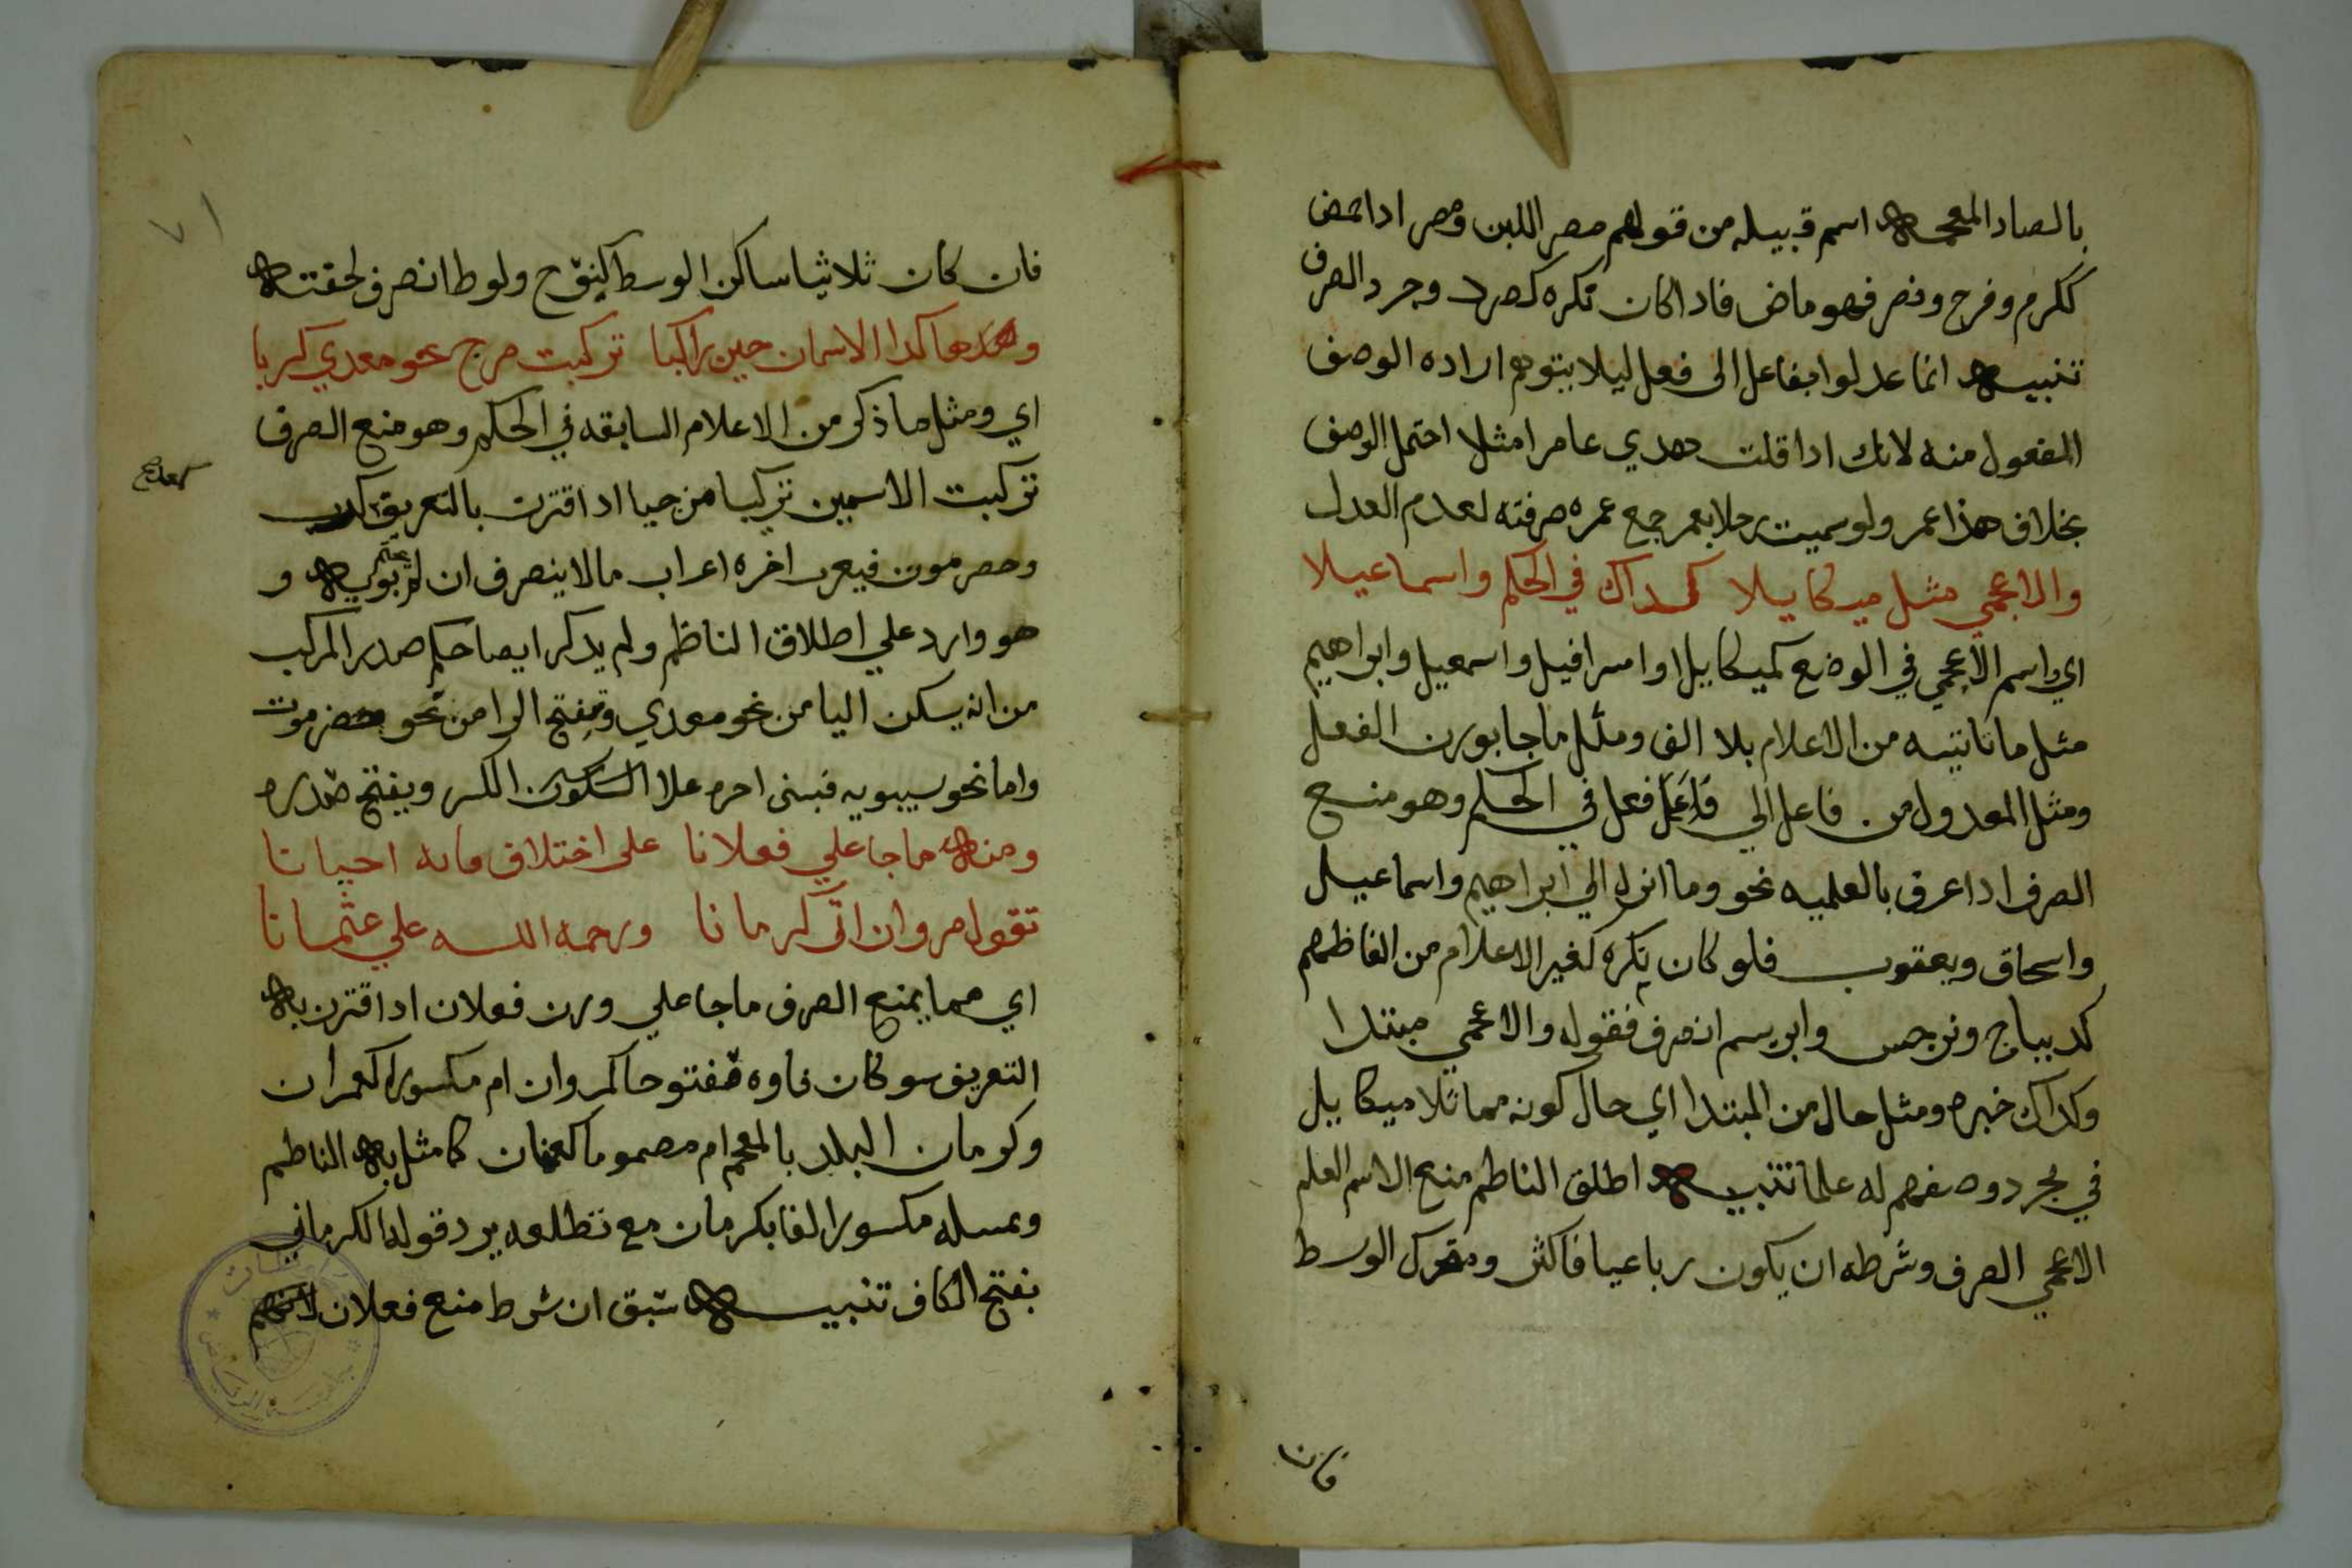 بالصاد المعجمه اسم قبيله من قولهم مصر اللبن ومصر ادا حمض
ككرم وفرح ونصر فهو ماض فادا كان نكره كصرد وجرد الصرف
تنبيه انما عدلوا بفاعل الى فعل ليلا يتوهم اراده الوصف
المفعول منه لانك ادا قلت هدي عامرا مثلا احتمل الوصف
بخلاف هذا عمر ولو سميت رجلا بعمر جمع عمره صرفته لعدم العدل
والاعجمي مثل ميكاييلا كداك في الحكم واسماعيلا
اي واسم الاعجمي في الوضع كميكاييل او اسرافيل واسمعيل وابراهيم
مثل ما تانيثه من الاعلام بلا الف ومثل ما جا بوزن الفعل
ومثل المعدول من فاعل الي فعل في الحكم وهو منع
الصرف ادا عرف بالعلميه نحو وما انزل الي ابراهيم واسماعيل
واسحاق ويعقوب فلو كان نكره كغير الاعلام من الفاظهم
كديباج ونرجس وابريسم انصرف فقوله والاعجمي مبتدا
وكداك خبره ومثل حال من المبتدا اي حال كونه مماثلا ميكاييل
في مجرد وصفهم له علما تنبيه اطلق الناظم منع الاسم العلم
الاعجمي الصرف وشرطه ان يكون رباعيا فاكثر ومتحرك الوسط
فان
فان كان ثلاثيا ساكن الوسط كنوح ولوط انصرف لخفته
وهكدا الاسمان حين ركبا تركيب مزج نحو معدي كربا
اي ومثل ما ذكر من الاعلام السابقه في الحكم وهو منع الصرف
تركيب الاسمين تركيبا مزجيا ادا اقترن بالتعريف
وحصرموت فيعرب اخره اعراب ما لا ينصرف ان لم يختم بويه و
هو وارد علي اطلاق الناظم ولم يدكر ايصا حكم صدر المركب
من انه يسكن اليا من نحو معدي وتفتح الرا من نحو حضرموت
واما نحو سيبويه فبنى اخره علا الكسر ويفتح صدره
ومنه ما جا علي فعلانا على اختلاف فايه احيانا
تقول مروان اتى كرمانا ورحمة الله علي عثمانا
اي مما يمنع الصرف ما جا علي وزن فعلان ادا اقترن به
التعريف سو كان فاوه مفتوحا كمروان ام مكسورا كعمران
وكرمان البلد بالمعجم ام مصموما كعثمان كما مثل به الناظم
وتمسله مكسور الفا بكرمان مع تطلعه يرد قوله الكرماني
بفتح الكاف تنبيه سبق ان شرط منع فعلان